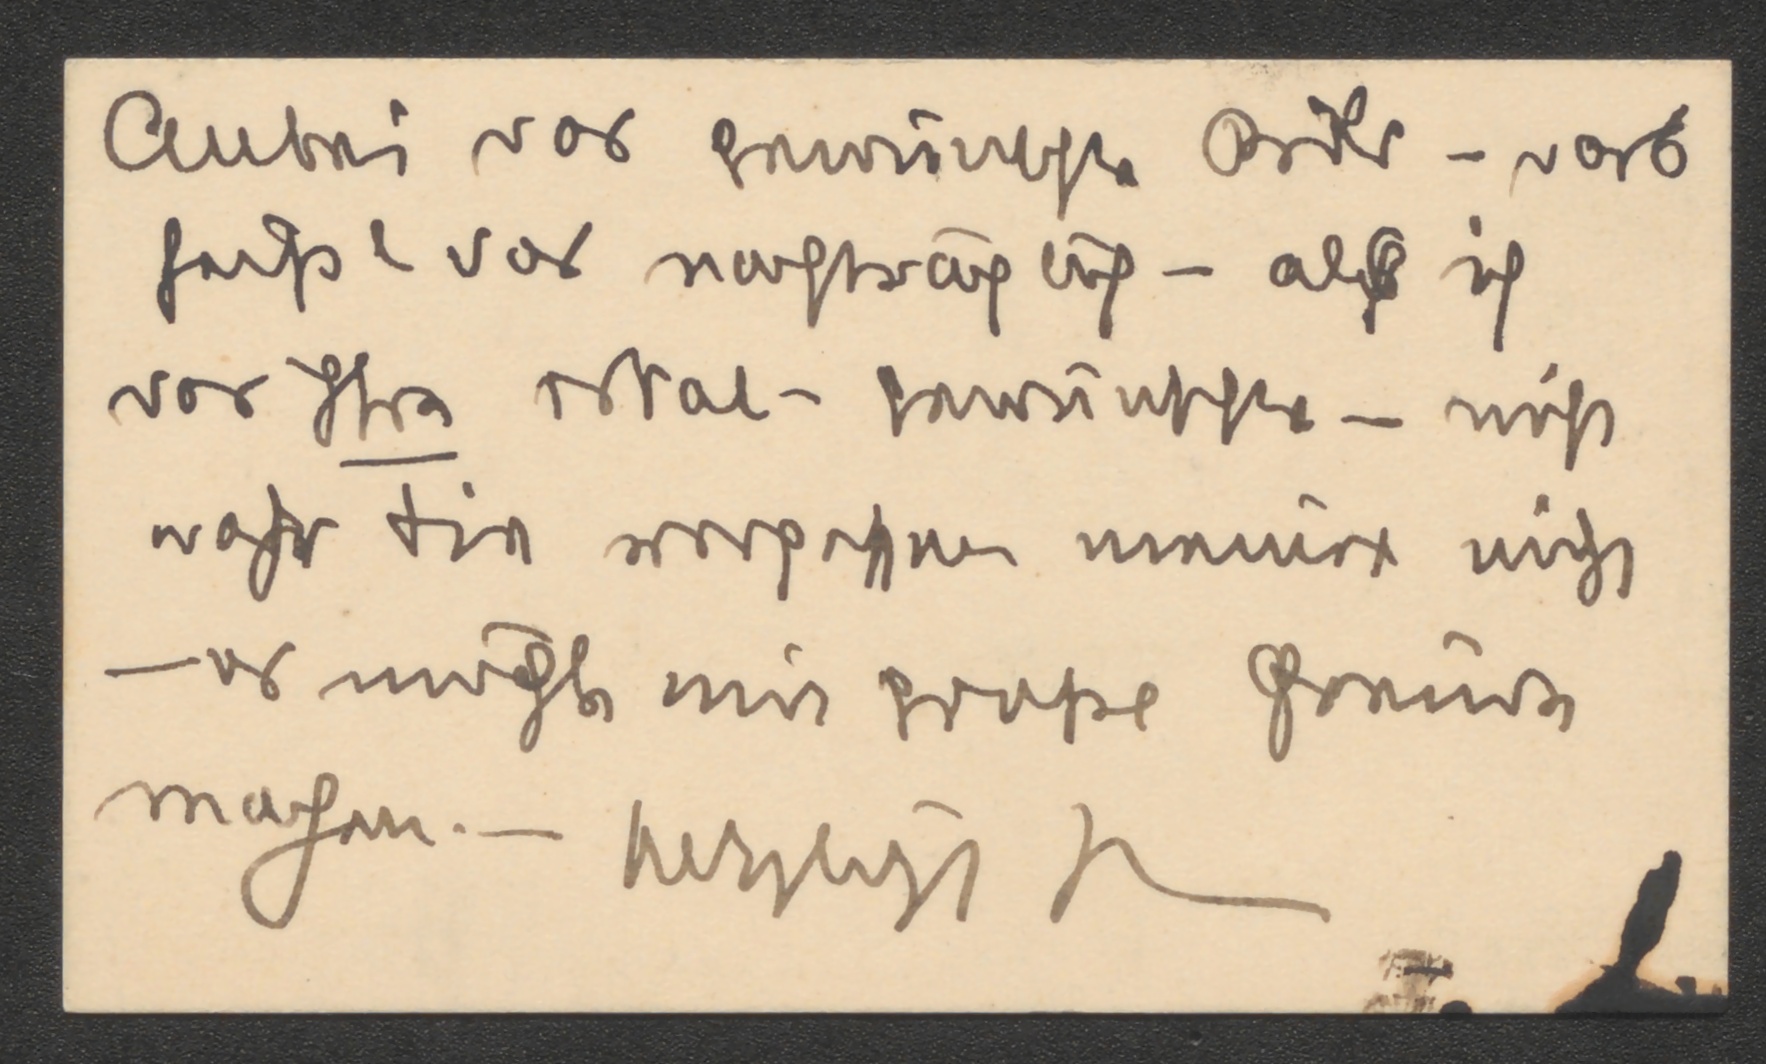 Anbei das gewünschte Bild – das
heißt das nachträglich – als ich
das Ihre erbat – gewünschte – nicht
wahr Sie vergessen meiner nicht
– es möchte mir große Freude
machen. – herzlichst